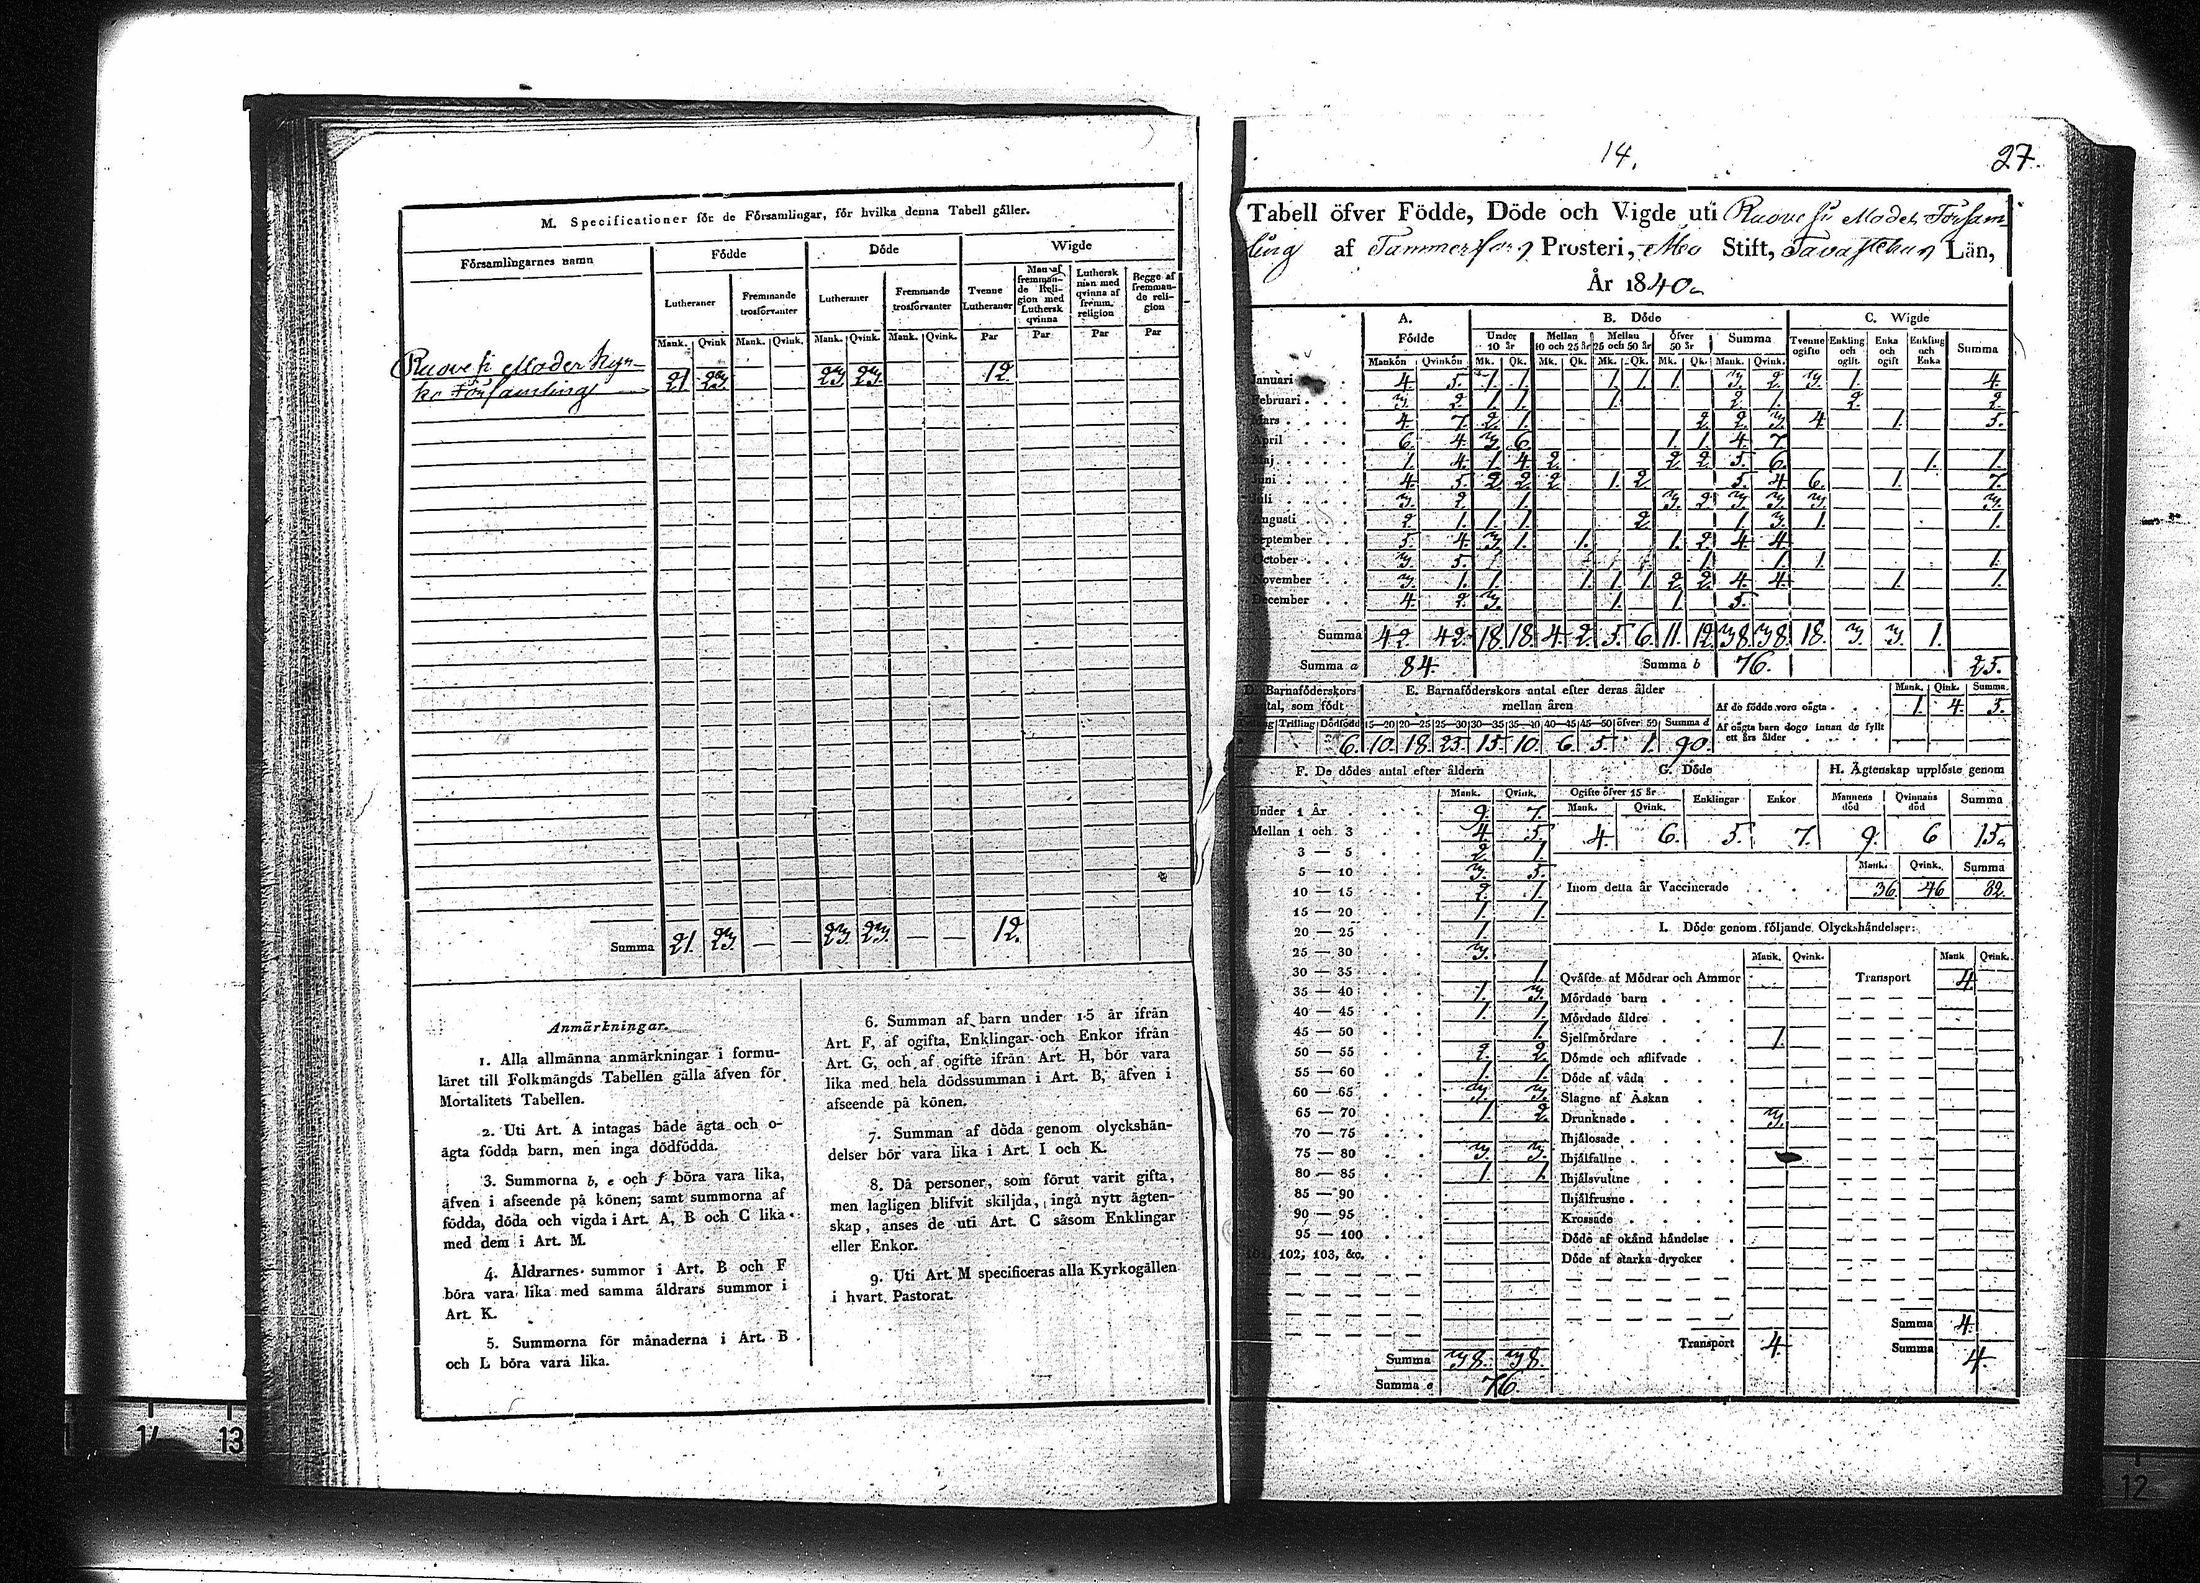 M. Specificationer för de Församlingar, för hvilka denna Tabell gäller.
Församlingarnes namn Födde Döde Wigde
Lutheraner Fremmande trosförvanter Lutheraner Fremmande trosförvanter Tvenne Lutheraner Man af fremmande Religion med Luthersk qvinna Luthersk man med qvinna af fremm. religion Begge af fremmande religion
Mank. Qvink Mank. Qvink. Mank. Qvink. Mank. Qvink. Par Par Par Par
Ruovesi Moder Kyr-
ko Församling 21 23. 23 23. 12.
Summa 21. 23. — — 23. 23. — — 12.
Anmärkningar.
1. Alla allmänna anmärkningar i formu-
läret till Folkmängds Tabellen gälla äfven för
Mortalitets Tabellen.
2. Uti Art. A intagas både ägta och o-
ägta födda barn, men inga dödfödda.
3. Summorna b, e och f böra vara lika,
äfven i afseende på könen; samt summorna af
födda, döda och vigda i Art. A, B och C lika
med dem i Art. M.
4. Åldrarnes summor i Art. B och F
böra vara lika med samma åldrars summor i
Art. K.
5. Summorna för månaderna i Art. B
och L böra vara lika.
6. Summan af barn under 15 år ifrån
Art. F, af ogifta, Enklingar och Enkor ifrån
Art. G, och af ogifte ifrån Art. H, bör vara
lika med hela dödssumman i Art. B, äfven i
afseende på könen.
7. Summan af döda genom olyckshän-
delser bör vara lika i Art. I och K.
8. Då personer, som förut varit gifta,
men lagligen blifvit skiljda, ingå nytt ägten-
skap, anses de uti Art. C såsom Enklingar
eller Enkor.
9. Uti Art. M specificeras alla Kyrkogällen
i hvart Pastorat.
14. 27.
Tabell öfver Födde, Döde och Vigde uti Ruovesi Moder Församl-
ling af Tammerfors Prosteri, Åbo Stift, Tavastehus Län,
År 1840.
A. B. Döde C. Wigde
Födde Under 10 år Mellan 10 och 25 år Mellan 25 och 50 år Öfver 50 år Summa Tvenne ogifte Enkling och ogift. Enka och ogift Enkling och Enka Summa
Mankön Qvinkön Mk. Qk. Mk. Qk. Mk. Qk. Mk. Qk. Mank. Qvink.
Januari 4. 5. 1. 1. 1. 1. 1. 3. 2. 3. 1. 4.
Februari 3. 2. 1. 1. 1. 2. 1. 2. 2.
Mars 4. 7. 2. 1. 2. 2. 3. 4. 1. 5.
April 6. 4. 3. 6. 1. 1. 4. 7.
Maj 1. 4. 1. 4. 2. 2. 2. 5. 6. 1. 1.
Juni 4. 5. 2. 2. 2. 1. 2. 5. 4. 6. 1. 7.
Juli 3. 2. 1. 3. 2. 3. 3. 3. 3.
Augusti 2. 1. 1. 1. 2. 1. 3. 1. 1.
September 5. 4. 3. 1. 1. 1. 2. 4. 4.
October 3. 5. 1. 1. 1. 1.
November 3. 1. 1. 1. 1. 1. 2. 2. 4. 4. 1. 1.
December 4. 2. 3. 1. 1. 5.
Summa 42. 42. 18. 18. 4. 2. 5. 6. 11. 12. 38. 38. 18. 3. 3. 1.
Summa a 84. Summa b 76. 25.
D. Barnaföderskors
E. Barnaföderskors antal efter deras ålder
mellan åren
Trilling Dödfödde 15—20 20—25 25—30 30—35 35—40 40—45 45—50 öfver 50 Summa d
6. 10. 18. 25. 15. 10. 6. 5. 1. 90.
Mank. Qink. Summa
Af de födde voro oägta 1. 4. 5.
Af oägta barn dogo innan de fyllt
ett års ålder
F. De dödes antal efter åldern
Mank. Qvink.
Under 1 År 9. 7.
Mellan 1 och 3 4. 5.
3 — 5 2. 1.
5 — 10 3. 5.
10 — 15 2. 1.
15 — 20 1. 1.
20 — 25 1.
25 — 30 3.
30 — 35 1.
35 — 40 1. 3.
40 — 45 1. 1.
45 — 50 1.
50 — 55 2. 2.
55 — 60 1. 1.
60 — 65 3.
65 — 70 1. 2.
70 — 75
75 — 80 3. 3.
80 — 85 1. 1.
85 — 90
90 — 95
95 — 100
102, 103, &c.
Summa 38. 38.
Summa e 76
G. Döde
Ogifte öfver 15 år Enklingar Enkor
Mank. Qvink.
4. 6. 5. 7.
H. Ägtenskap upplöste genom
Mannens död Qvinnans död Summa
9. 6 15.
Mank. Qvink. Summa
Inom detta år Vaccinerade 36. 46 82.
I. Döde genom följande Olyckshändelser:
Mank. Qvink. Mank Qvink.
Qväfde af Mödrar och Ammor Transport 4
Mördade barn
Mördade äldre
Sjelfmördare 1.
Dömde och aflifvade
Döde af våda
Slagne af Åskan
Drunknade 3.
Ihjälosade
Ihjälfallne
Ihjälsvultne
Ihjälfrusne
Krossade
Döde af okänd händelse
Döde af starka drycker
Summa 4.
Transport 4. Summa 4.
14 13
12